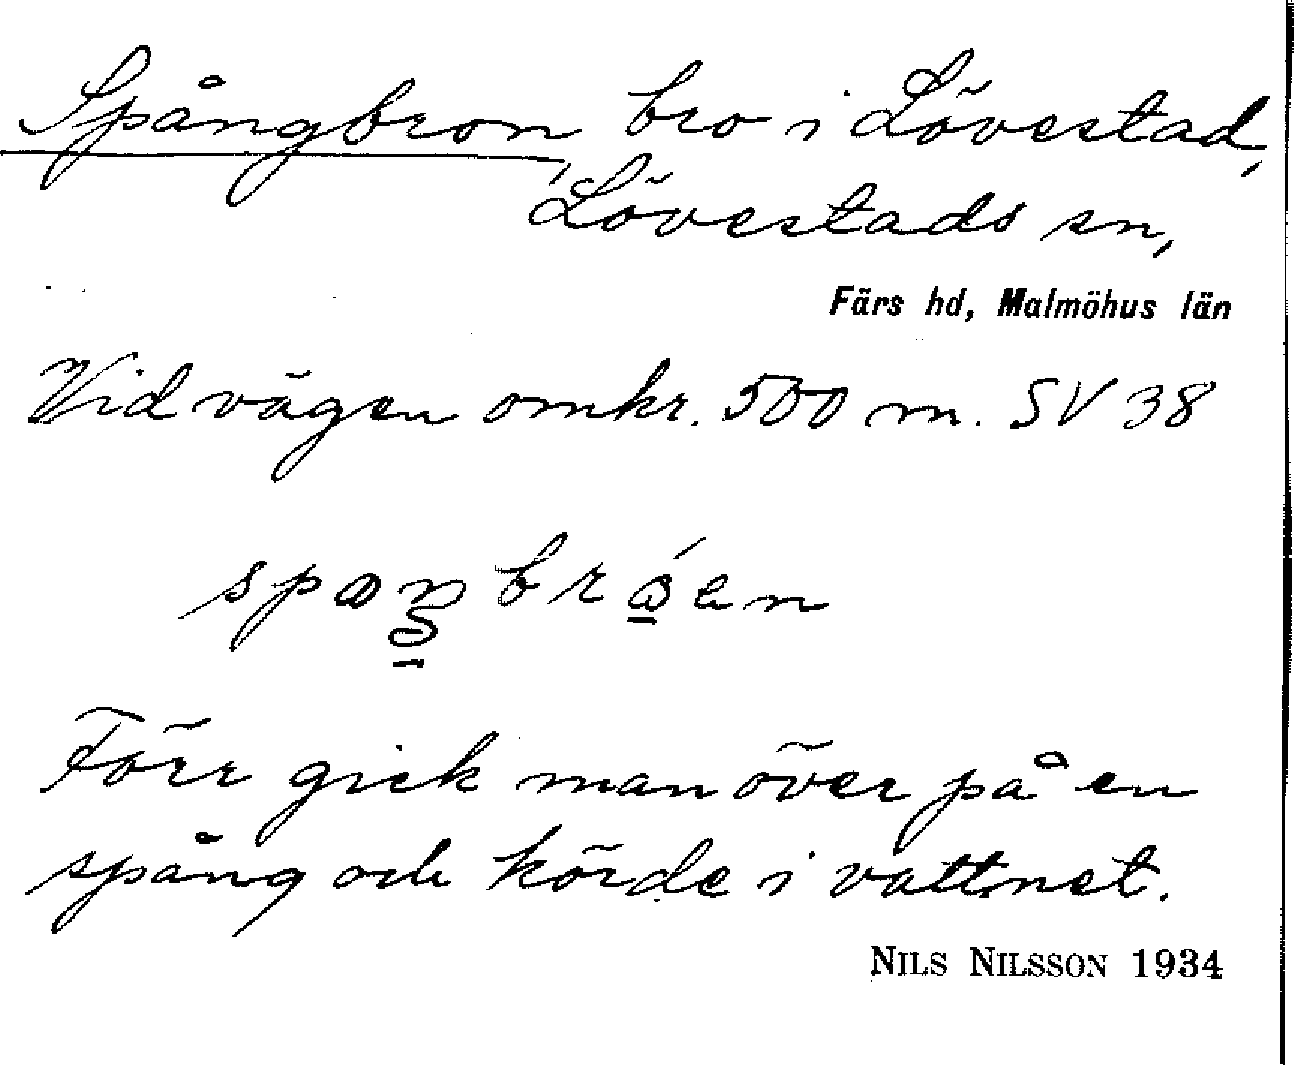 Spångbron, bro i Lövestad,
Lövestads sn,
Färs hd, Malmöhus län
Vid vägen omkr. 500 m. SV 38
Förr gick man över på en
spång och körde i vattnet.
NILS NILSSON 1934